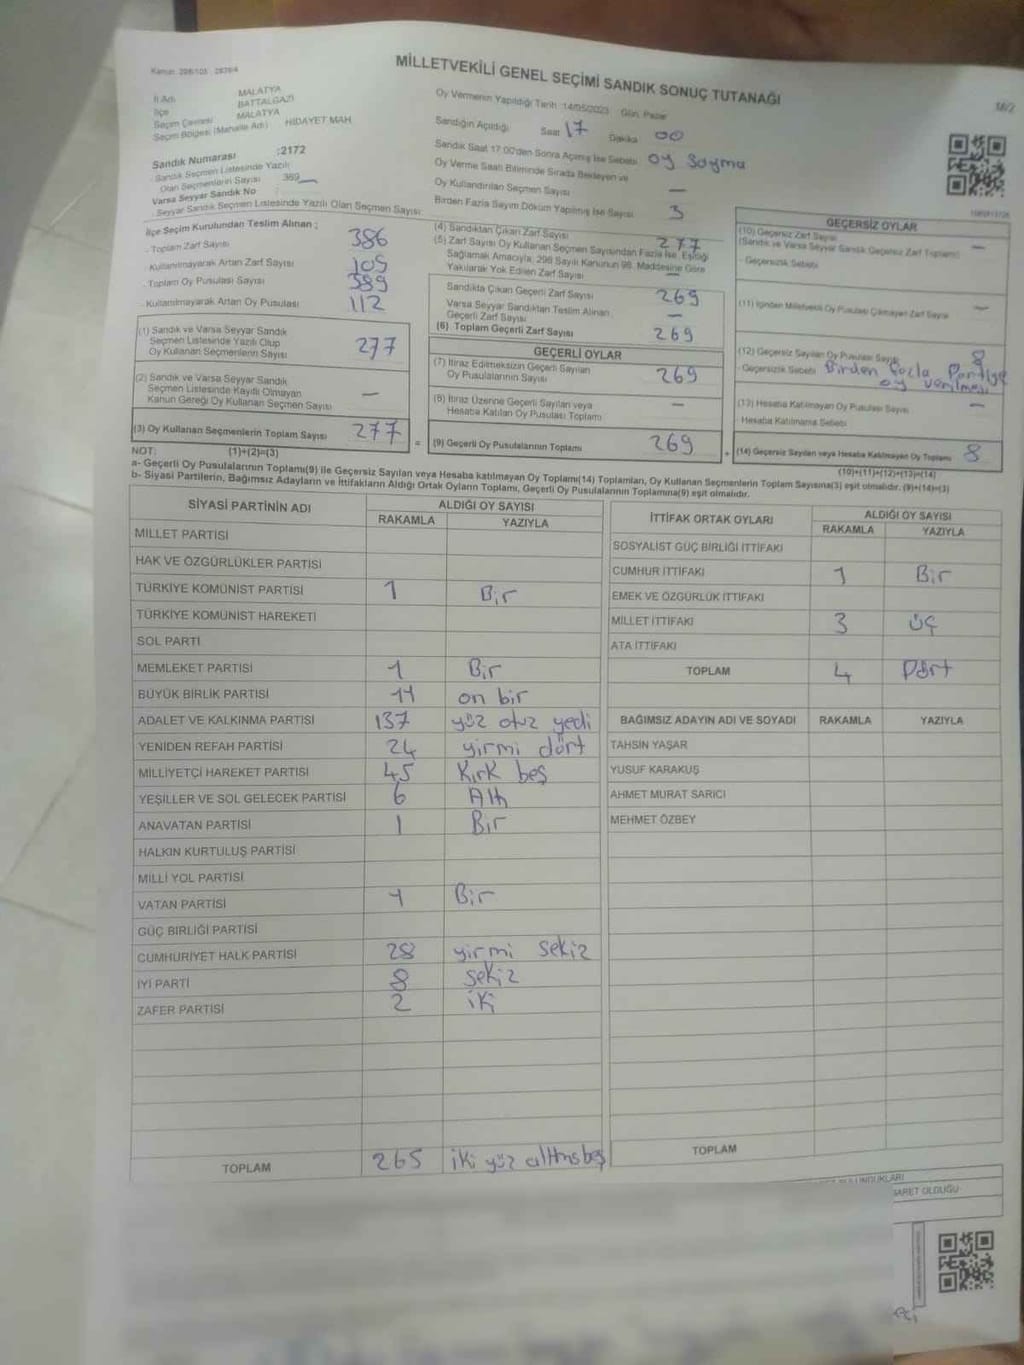 Kanun: 298/105 - 2839/4
MİLLETVEKİLİ GENEL SEÇİMİ SANDIK SONUÇ TUTANAĞI
İl Adı MALATYA
İlçe BATTALGAZİ
Seçim Çevresi MALATYA
Seçim Bölgesi (Mahalle Adı) HİDAYET MAH.
Sandık Numarası :2172
Sandık Seçmen Listesinde Yazılı
Olan Seçmenlerin Sayısı 369
Varsa Seyyar Sandık No
Seyyar Sandık Seçmen Listesinde Yazılı Olan Seçmen Sayısı
Oy Vermenin Yapıldığı Tarih :14/05/2023 Gün: Pazar
Sandığın Açıldığı Saat 17 Dakika 00
Sandık Saat 17:00'den Sonra Açılmış İse Sebebi oy sayma
Oy Verme Saati Bitiminde Sırada Bekleyen ve
Oy Kullandırılan Seçmen Sayısı —
Birden Fazla Sayım Döküm Yapılmış İse Sayısı 3
İlçe Seçim Kurulundan Teslim Alınan ;
- Toplam Zarf Sayısı 386
- Kullanılmayarak Artan Zarf Sayısı 109
- Toplam Oy Pusulası Sayısı 389
- Kullanılmayarak Artan Oy Pusulası 112
(1) Sandık ve Varsa Seyyar Sandık
Seçmen Listesinde Yazılı Olup
Oy Kullanan Seçmenlerin Sayısı 277
(2) Sandık ve Varsa Seyyar Sandık
Seçmen Listesinde Kayıtlı Olmayan
Kanun Gereği Oy Kullanan Seçmen Sayısı —
(3) Oy Kullanan Seçmenlerin Toplam Sayısı 277
(4) Sandıktan Çıkan Zarf Sayısı 277
(5) Zarf Sayısı Oy Kullanan Seçmen Sayısından Fazla İse, Eşitliği
Sağlamak Amacıyla, 298 Sayılı Kanunun 98. Maddesine Göre
Yakılarak Yok Edilen Zarf Sayısı —
Sandıkta Çıkan Geçerli Zarf Sayısı 269
Varsa Seyyar Sandıktan Teslim Alınan
Geçerli Zarf Sayısı —
(6) Toplam Geçerli Zarf Sayısı 269
GEÇERLİ OYLAR
(7) İtiraz Edilmeksizin Geçerli Sayılan
Oy Pusulalarının Sayısı 269
(8) İtiraz Üzerine Geçerli Sayılan veya
Hesaba Katılan Oy Pusulası Toplamı —
= (9) Geçerli Oy Pusulalarının Toplamı 269
GEÇERSİZ OYLAR
(10) Geçersiz Zarf Sayısı —
(Sandık ve Varsa Seyyar Sandık Geçersiz Zarf Toplamı)
- Geçersizlik Sebebi
(11) İçinden Milletvekili Oy Pusulası Çıkmayan Zarf Sayısı —
(12) Geçersiz Sayılan Oy Pusulası Sayısı 8
- Geçersizlik Sebebi Birden fazla Partiye
oy verilmesi
(13) Hesaba Katılmayan Oy Pusulası Sayısı —
Hesaba Katılmama Sebebi
+ (14) Geçersiz Sayılan veya Hesaba Katılmayan Oy Toplamı 8
NOT: (1)+(2)=(3)
(10)+(11)+(12)+(13)=(14)
a- Geçerli Oy Pusulalarının Toplamı(9) ile Geçersiz Sayılan veya Hesaba katılmayan Oy Toplamı(14) Toplamları, Oy Kullanan Seçmenlerin Toplam Sayısına(3) eşit olmalıdır. (9)+(14)=(3)
b- Siyasi Partilerin, Bağımsız Adayların ve İttifakların Aldığı Ortak Oyların Toplamı, Geçerli Oy Pusulalarının Toplamına(9) eşit olmalıdır.
SİYASİ PARTİNİN ADI ALDIĞI OY SAYISI
RAKAMLA YAZIYLA
MİLLET PARTİSİ
HAK VE ÖZGÜRLÜKLER PARTİSİ
TÜRKİYE KOMÜNİST PARTİSİ 1 Bir
TÜRKİYE KOMÜNİST HAREKETİ
SOL PARTİ
MEMLEKET PARTİSİ 1 Bir
BÜYÜK BİRLİK PARTİSİ 11 on bir
ADALET VE KALKINMA PARTİSİ 137 yüz otuz yedi
YENİDEN REFAH PARTİSİ 24 yirmi dört
MİLLİYETÇİ HAREKET PARTİSİ 45 Kırk beş
YEŞİLLER VE SOL GELECEK PARTİSİ 6 Altı
ANAVATAN PARTİSİ 1 Bir
HALKIN KURTULUŞ PARTİSİ
MİLLİ YOL PARTİSİ
VATAN PARTİSİ 1 Bir
GÜÇ BİRLİĞİ PARTİSİ
CUMHURİYET HALK PARTİSİ 28 yirmi sekiz
İYİ PARTİ 8 sekiz
ZAFER PARTİSİ 2 iki
TOPLAM 265 iki yüz altmış beş
İTTİFAK ORTAK OYLARI ALDIĞI OY SAYISI
RAKAMLA YAZIYLA
SOSYALİST GÜÇ BİRLİĞİ İTTİFAKI
CUMHUR İTTİFAKI 1 Bir
EMEK VE ÖZGÜRLÜK İTTİFAKI
MİLLET İTTİFAKI 3 üç
ATA İTTİFAKI
TOPLAM 4 Dört
BAĞIMSIZ ADAYIN ADI VE SOYADI RAKAMLA YAZIYLA
TAHSİN YAŞAR
YUSUF KARAKUŞ
AHMET MURAT SARICI
MEHMET ÖZBEY
TOPLAM